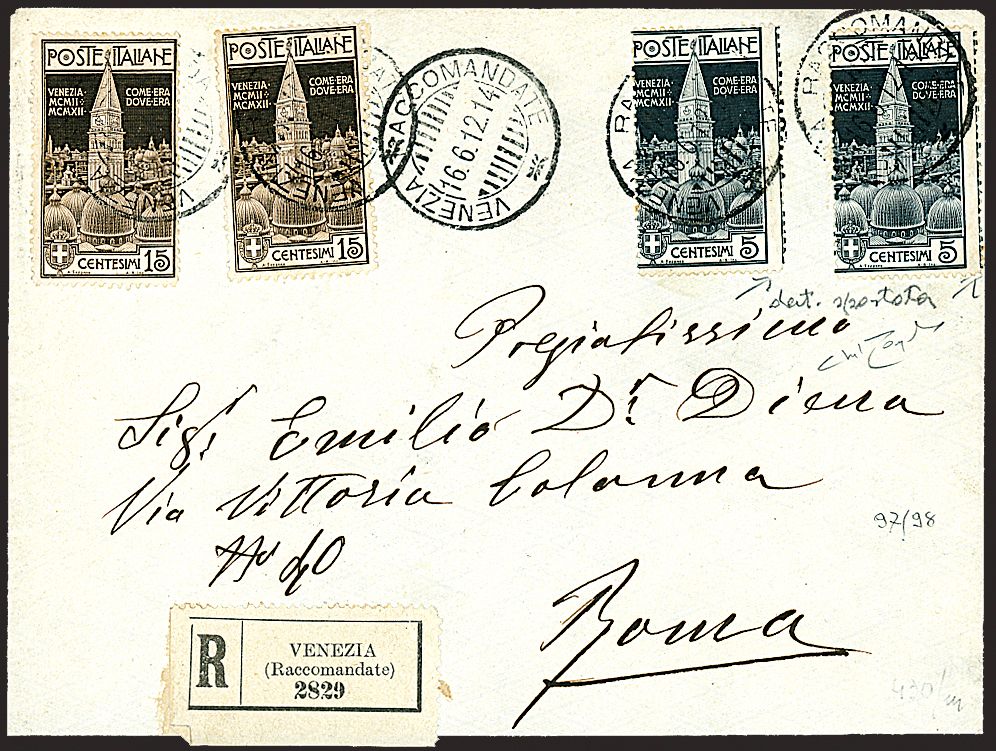 POSTE ITALIANE
VENEZIA·
MCMII·
MCMXII·
COM'·ERA
DOV'·ERA
CENTESIMI 15
POSTE ITALIANE
VENEZIA·
MCMII·
MCMXII·
COM'·ERA
DOV'·ERA
CENTESIMI 15
RACCOMANDATE
16.6.12.14
VENEZIA
POSTE ITALIANE
VENEZIA·
MCMII·
MCMXII·
COM'·ERA
DOV'·ERA
CENTESIMI 5
POSTE ITALIANE
VENEZIA·
MCMII·
MCMXII·
COM'·ERA
DOV'·ERA
CENTESIMI 5
dent. spostata
Pregiatissimo
Sigr. Emilio Dr. Diena
Via Vittoria Colonna
No 40
97/98
Roma
R
VENEZIA
(Raccomandate)
2829